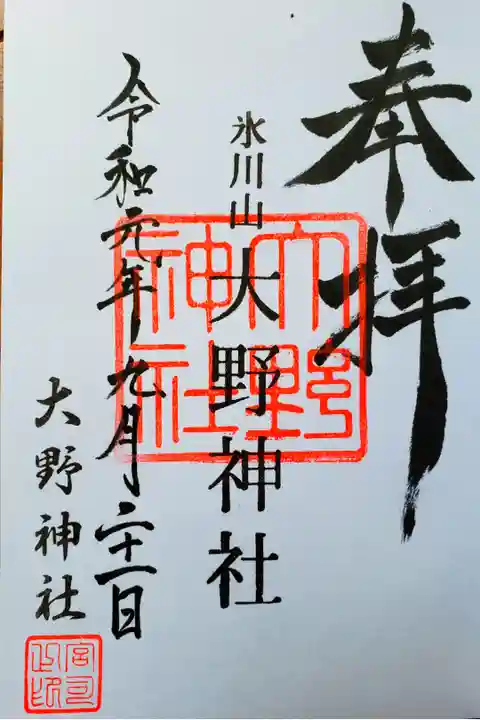 奉拝
氷川山
大野神社
大野神社
令和元年九月二十一日
大野神社
宮司之印